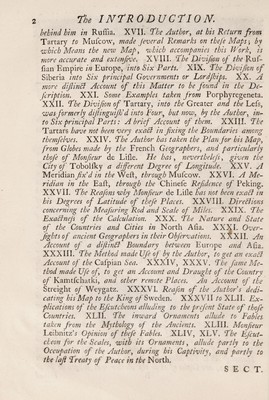 2 The INTRODUCTION.
behind him in Russia. XVII. The Author, at his Return from
Tartary to Muscow, made several Remarks or these Maps; by
which Means the new Map, which accompanies this Work, is
more accurate and extensive. XVIII. The Division of the Rus-
sian Empire in Europe, into Six Parts. XIX. The Division of
Siberia into Six principal Governments or Lordships. XX. A
more distinct Account of this Matter to be found in the De-
scription. XXI. Some Examples taken from Porphyrogeneta.
XXII. The Division of Tartary, into the Greater and the Less,
was formerly distinguish'd into Four, but now, by the Author, in-
to Six principal Parts: A brief Account of them. XXIII. The
Tartars have not been very exact in fixing the Boundaries among
themselves. XXIV. The Author has taken the Plan for his Map,
from Globes made by the French Geographers, and particularly
those of Monsieur de Lisle. He has, nevertheless, given the
City of Tobolsky a different Degree of Longitude. XXV. A
Meridian fix'd in the West, through Muscow. XXVI. A Me-
ridian in the East, through the Chinese Residence of Peking.
XXVII. The Reason why Monsieur de Lisle has not been exact in
his Degrees of Latitude of these Places. XXVIII. Directions
concerning the Measuring Rod and Scale of Miles. XXIX. The
Exactness of the Calculation. XXX. The Nature and State
of the Countries and Cities in North Asia. XXXI. Over-
sights of ancient Geographers in their Observations. XXXII. An
Account of a distinct Boundary between Europe and Asia.
XXXIII. The Method made Use of by the Author, to get an exact
Account of the Caspian Sea. XXXIV, XXXV. The same Me-
thod made Use of, to get an Account and Draught of the Country
of Kamtschatki, and other remote Places. An Account of the
Streight of Weygatz. XXXVI. Reason of the Author's dedi-
cating his Map to the King of Sweden. XXXVII to XLII. Ex-
plications of the Escutcheons alluding to the present State of those
Countries. XLII. The inward Ornaments allude to Fables
taken from the Mythology of the Ancients. XLIII. Monsieur
Leibnitz's Opinion of these Fables. XLIV, XLV. The Escut-
cheon for the Scales, with its Ornaments, allude partly to the
Occupation of the Author, during his Captivity, and partly to
the last Treaty of Peace in the North.
SECT.